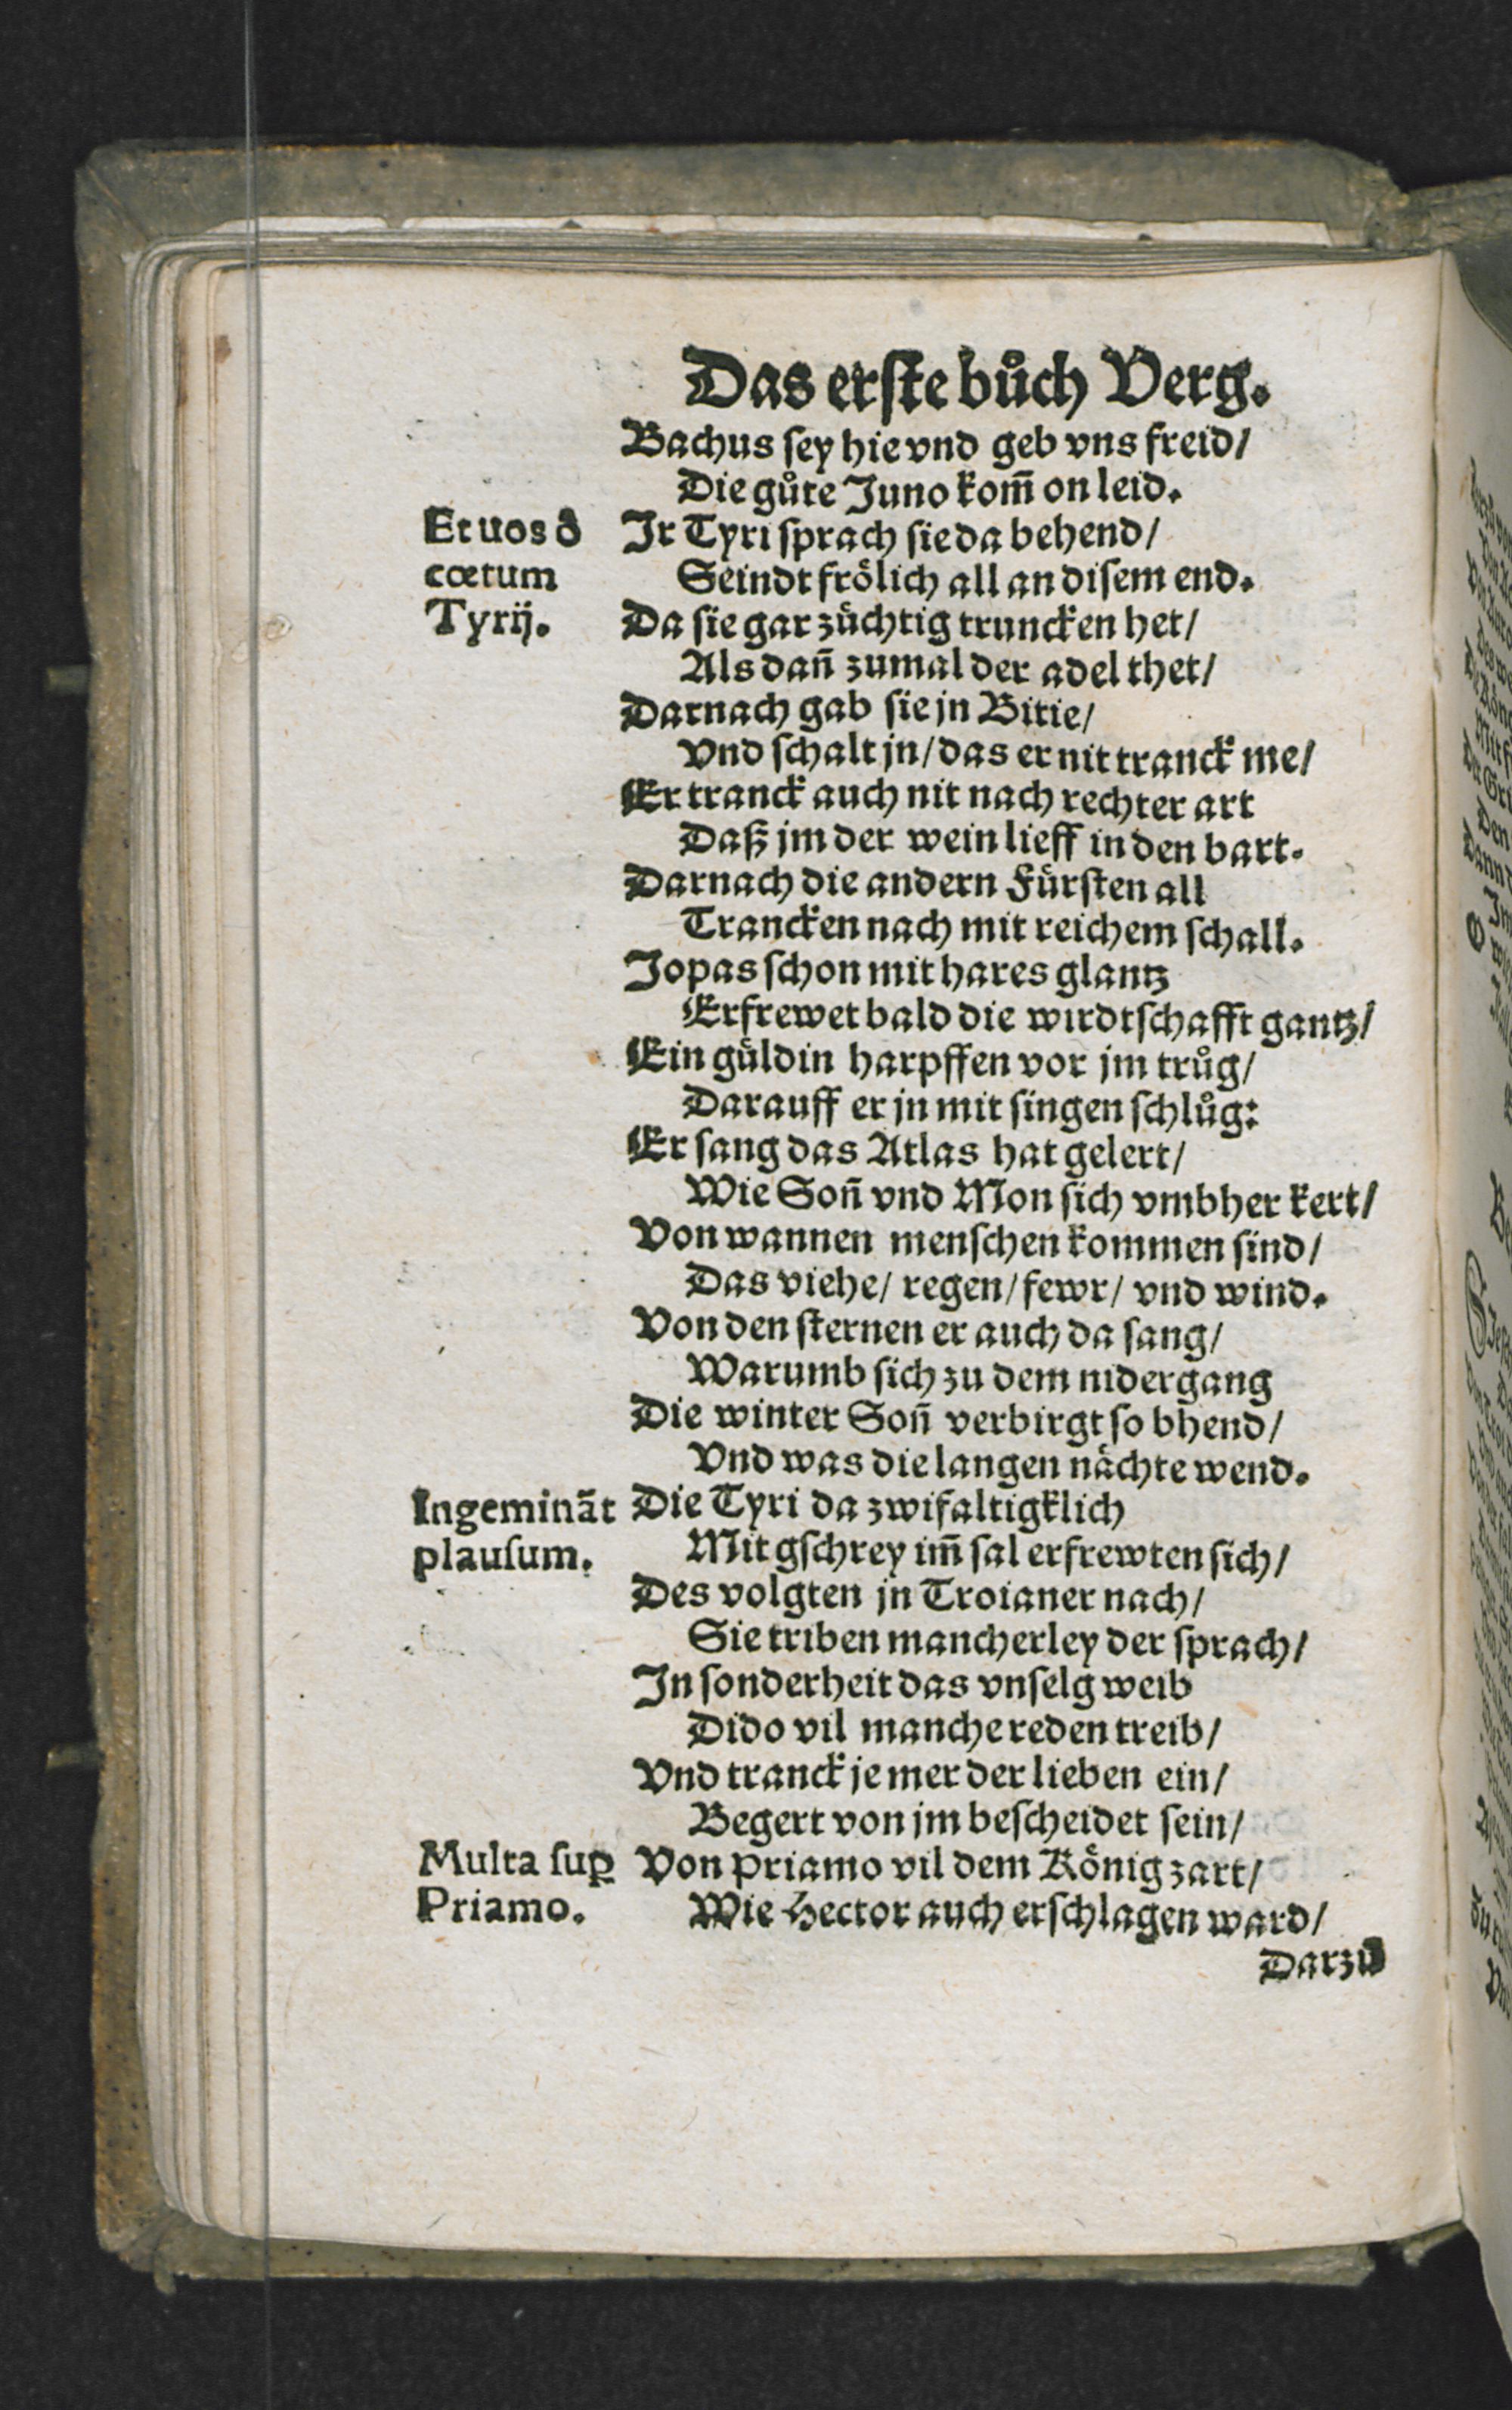 Das erste bůch Verg.
Bachus sey hie vnd geb vns freid/
Die gůte Juno kom̃ on leid.
Et uos ð
cœtum
Tyrij.
Ir Tyri sprach sie da behend/
Seindt frölich all an disem end.
Da sie gar züchtig truncken het/
Als dañ zumal der adel thet/
Darnach gab sie jn Bitie/
Vnd schalt jn/ das er nit tranck me/
Er tranck auch nit nach rechter art
Daß jm der wein lieff in den bart.
Darnach die andern Fürsten all
Trancken nach mit reichem schall.
Jopas schon mit hares glantz
Erfrewet bald die wirdtschafft gantz/
Ein güldin harpffen vor jm trůg/
Darauff er jn mit singen schlůg:
Er sang das Atlas hat gelert/
Wie Soñ vnd Mon sich vmbher kert/
Von wannen menschen kommen sind/
Das viehe/ regen/ fewr/ vnd wind.
Von den sternen er auch da sang/
Warumb sich zu dem nidergang
Die winter Soñ verbirgt so bhend/
Vnd was die langen nächte wend.
Ingeminãt
plausum.
Die Tyri da zwifaltigklich
Mit gschrey im̃ sal erfrewten sich/
Des volgten jn Troianer nach/
Sie triben mancherley der sprach/
In sonderheit das vnselg weib
Dido vil manche reden treib/
Vnd tranck je mer der lieben ein/
Begert von jm bescheidet sein/
Multa suꝑ
Priamo.
Von Priamo vil dem König zart/
Wie Hector auch erschlagen ward/
Darzů